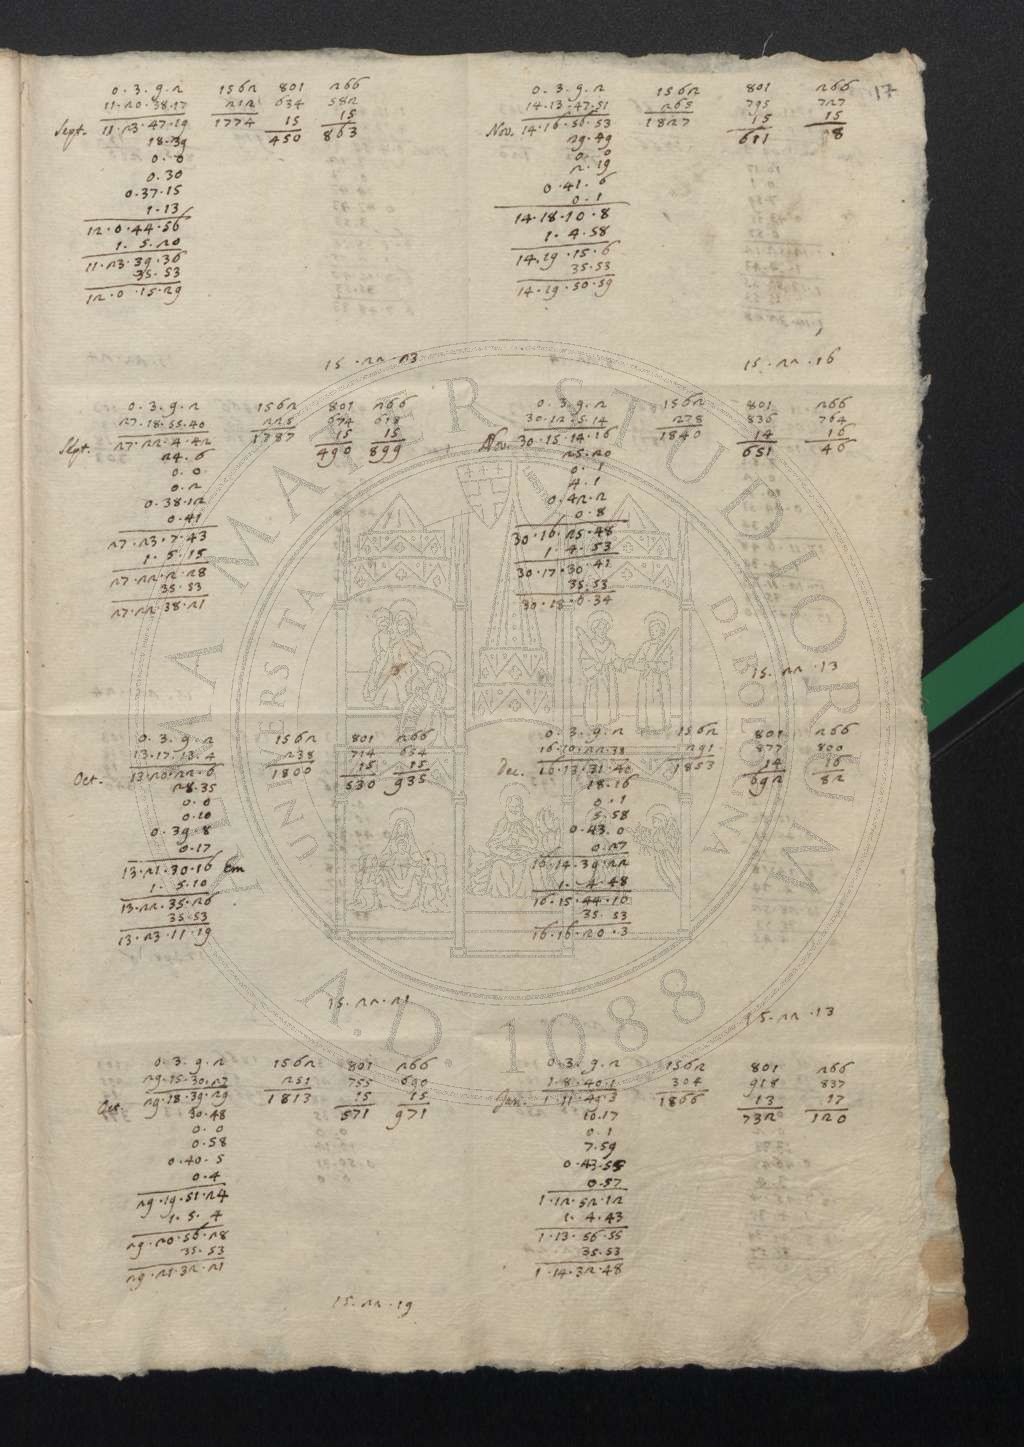 17
0.3.9.2 1562 801 266
11.20.38.17 212 634 582
Sept. 11.23.47.19 1774 15 15
18.39 450 863
0.0
0.30
0.37.15
1.13
12.0.44.56
1.5.20
11.23.39.36
35.53
12.0.15.29
15.22.23
0.3.9.2 1562 801 266
27.18.55.40 225 674 618
Sept. 27.22.4.42 1787 15 15
24.6 490 899
0.0
0.2
0.38.12
0.41
27.23.7.43
1.5.15
27.22.2.28
35.53
27.22.38.21
0.3.9.2 1562 801 266
13.17.13.4 238 714 654
Oct. 13.20.22.6 1800 15 15
28.35 530 935
0.0
0.10
0.39.8
0.17
13.21.30.16 em
1.5.10
13.22.35.26
35.53
13.23.11.19
15.22.21
0.3.9.2 1562 801 266
29.15.30.27 251 755 690
Oct. 29.18.39.29 1813 15 15
30.48 571 971
0.0
0.58
0.40.5
0.4
29.19.51.24
1.5.4
29.20.56.28
35.53
29.21.32.21
15.22.19
0.3.9.2 1562 801 266
14.13.47.51 265 795 727
Nov. 14.16.56.53 1827 15 15
29.49 611 8
0.0
2.19
0.41.6
0.1
14.18.10.8
1.4.58
14.19.15.6
35.53
14.19.50.59
15.22.16
0.3.9.2 1562 801 266
30.12.5.14 278 836 764
Nov. 30.15.14.16 1840 14 16
25.20 651 46
0.1
4.1
0.42.2
0.8
30.16.25.48
1.4.53
30.17.30.41
35.53
30.18.6.34
15.22.13
0.3.9.2 1562 801 266
16.10.22.38 291 877 800
Dec. 16.13.31.40 1853 14 16
18.16 692 82
0.1
5.58
0.43.0
0.27
16.14.39.22
1.4.48
16.15.44.10
35.53
16.16.20.3
15.22.13
0.3.9.2 1562 801 266
1.8.40.1 304 918 837
Jan. 1.11.49.3 1866 13 17
10.17 732 120
0.1
7.59
0.43.55
0.57
1.12.52.12
1.4.43
1.13.56.55
35.53
1.14.32.48
ALMA MATER STUDIORUM
UNIVERSITAS DI BOLOGNA
A.D. 1088